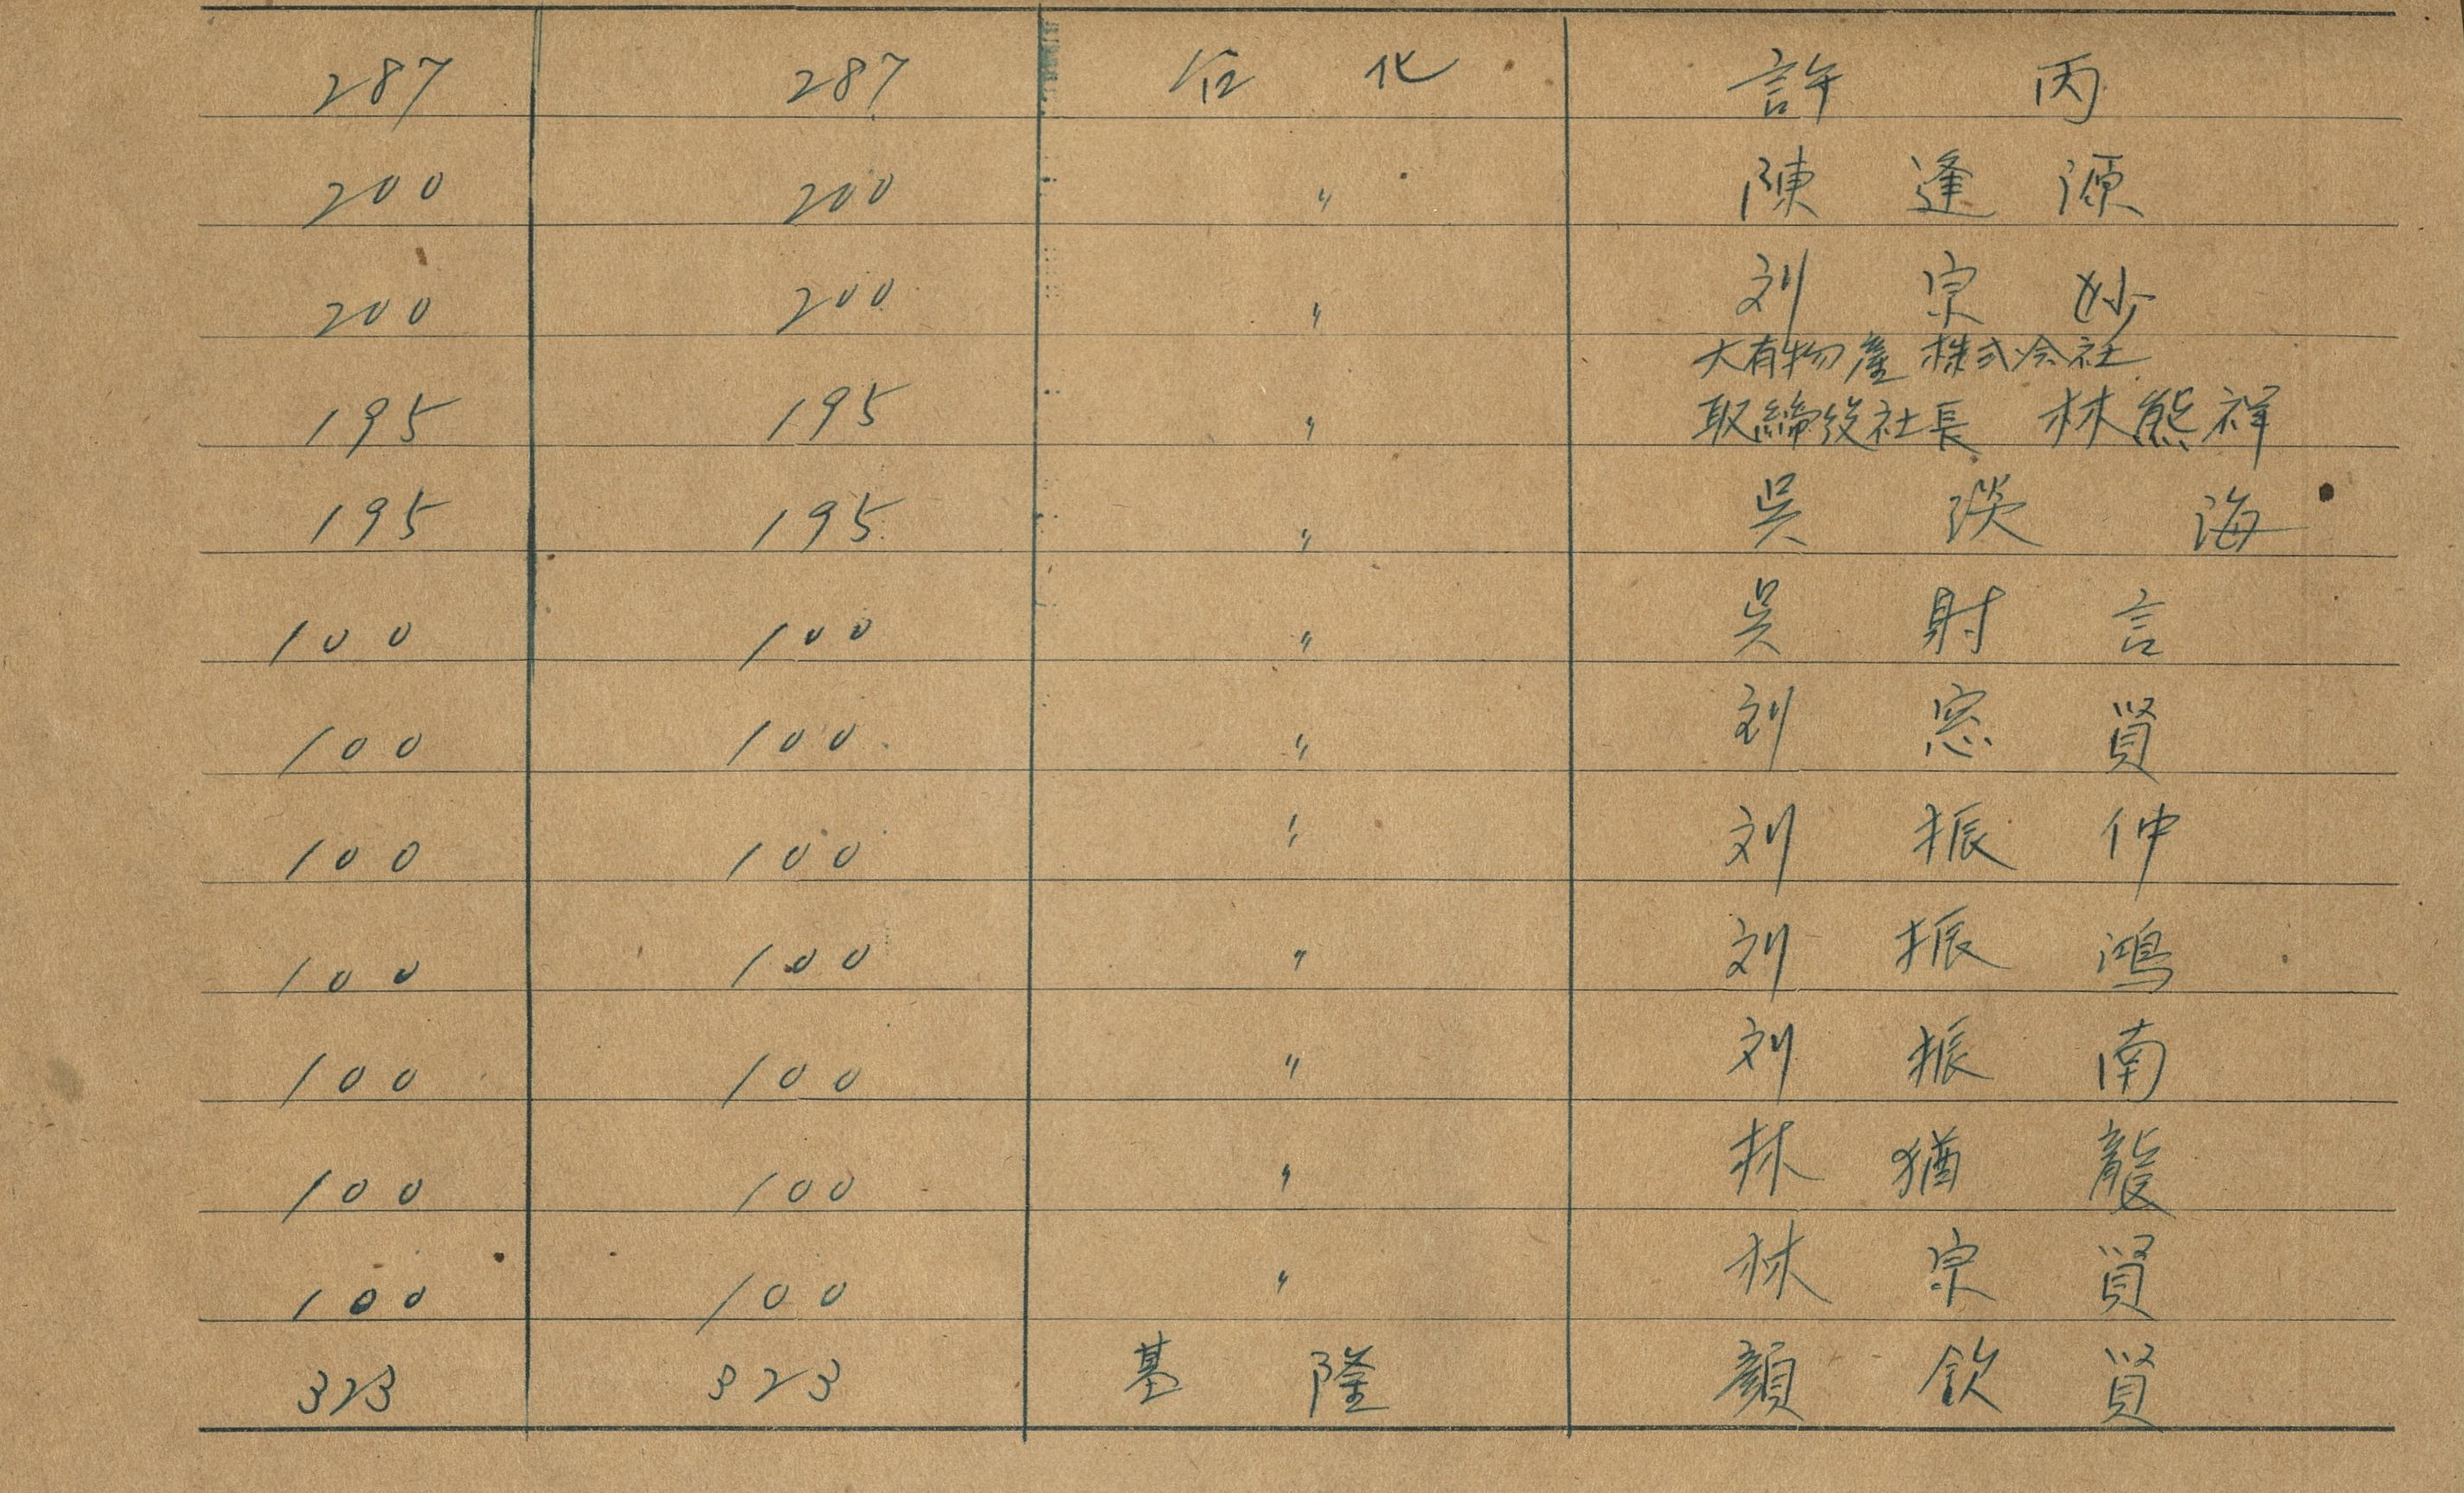 287 287 台北 許丙
200 200 〃 陳逢源
200 200 〃 刘宗妙
大有物産株式会社
195 195 〃 取締役社長 林熊祥
195 195 〃 吳淡海
100 100 〃 吳財言
100 100 〃 刘窓賢
100 100 〃 刘振仲
100 100 〃 刘振鴻
100 100 〃 刘振南
100 100 〃 林猶龍
100 100 〃 林宗賢
323 323 基隆 顏欽賢